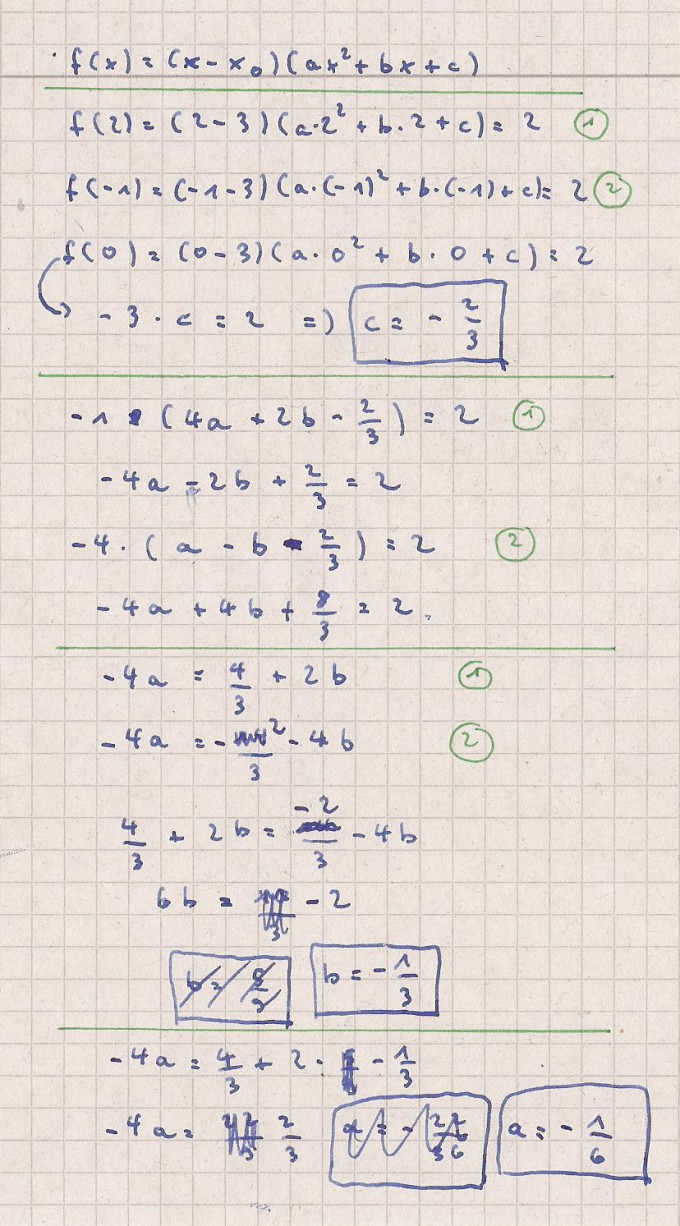 f(x) = (x - x₀)(ax² + bx + c)
f(2) = (2 - 3)(a·2² + b·2 + c) = 2 ①
f(-1) = (-1-3)(a·(-1)² + b·(-1) + c) = 2 ②
f(0) = (0-3)(a·0² + b·0 + c) = 2
-3 · c = 2 => c = - 2/3
-1 · (4a + 2b - 2/3) = 2 ①
-4a - 2b + 2/3 = 2
-4 · (a - b - 2/3) = 2 ②
-4a + 4b + 8/3 = 2
-4a = 4/3 + 2b ①
-4a = - 2/3 - 4b ②
4/3 + 2b = -2/3 - 4b
6b = -2
b = - 1/3
-4a = 4/3 + 2 · - 1/3
-4a = 2/3 a = - 1/6